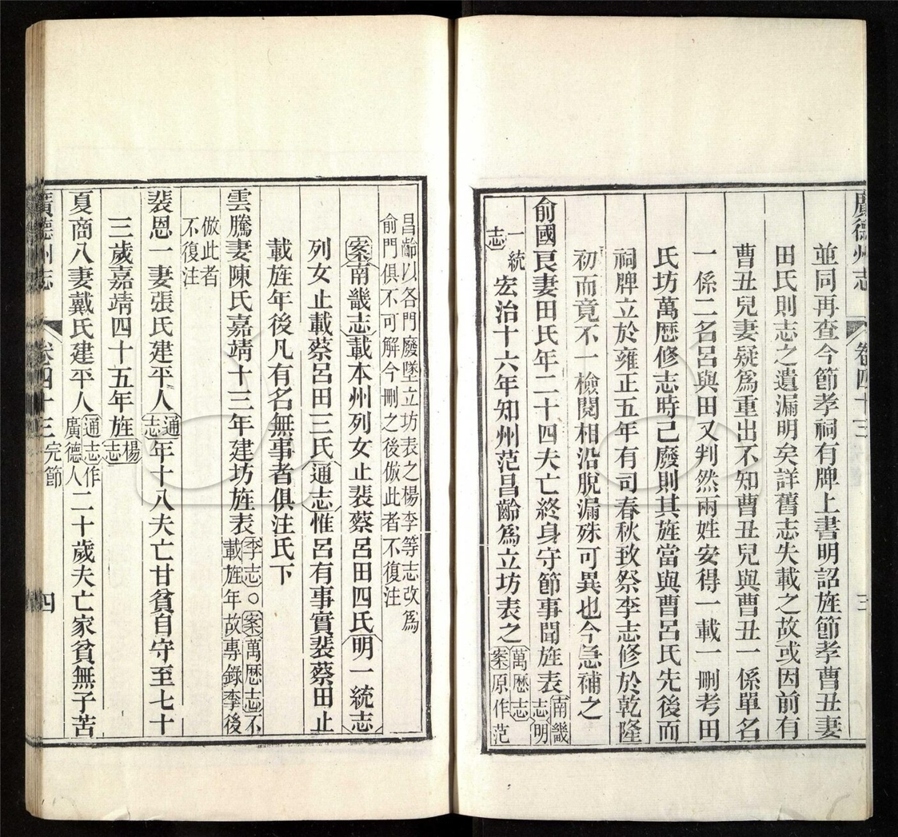 廣德州志 卷四十三 三
並同再查今節孝祠有牌上書明詔旌節孝曹丑妻
田氏則志之遺漏明矣詳舊志失載之故或因前有
曹丑兒妻疑爲重出不知曹丑兒與曹丑一係單名
一係二名呂與田又判然兩姓安得一載一刪考田
氏坊萬厯修志時已廢則其旌當與曹呂氏先後而
祠牌立於雍正五年有司春秋致祭李志修於乾隆
初而竟不一檢閱相沿脫漏殊可異也今急補之
俞國良妻田氏年二十四夫亡終身守節事聞旌表南畿志明
一統志宏治十六年知州范昌齡爲立坊表之萬厯志案原作范
昌齡以各門廢墜立坊表之楊李等志改爲
俞門俱不可解今刪之後倣此者不復注
案南畿志載本州列女止裴蔡呂田四氏明一統志
列女止載蔡呂田三氏通志惟呂有事實裴蔡田止
載旌年後凡有名無事者俱注氏下
雲騰妻陳氏嘉靖十三年建坊旌表李志○案萬厯志不載旌年故專錄李後
倣此者不復注
裴恩一妻張氏建平人通志年十八夫亡甘貧自守至七十
三歲嘉靖四十五年旌楊志
夏商八妻戴氏建平人通志作廣德人二十歲夫亡家貧無子苦
廣德州志 卷四十三 完節 四